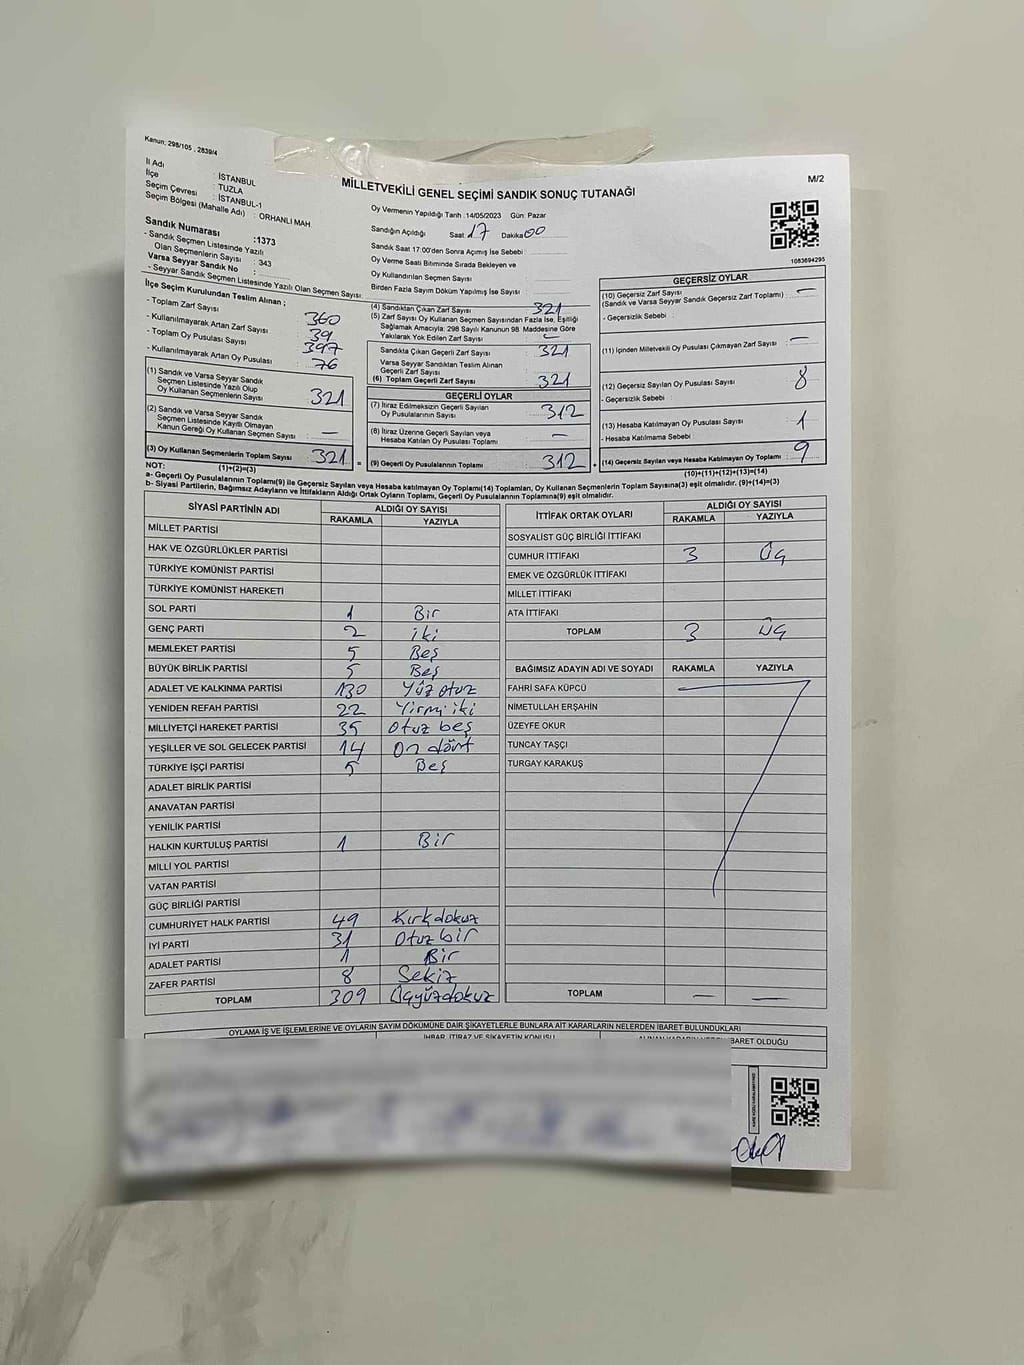 Kanun: 298/105 , 2839/4
İl Adı : İSTANBUL
İlçe : TUZLA
Seçim Çevresi : İSTANBUL-1
Seçim Bölgesi (Mahalle Adı) : ORHANLI MAH.
MİLLETVEKİLİ GENEL SEÇİMİ SANDIK SONUÇ TUTANAĞI
M/2
Sandık Numarası :1373
- Sandık Seçmen Listesinde Yazılı
Olan Seçmenlerin Sayısı : 343
Varsa Seyyar Sandık No :
- Seyyar Sandık Seçmen Listesinde Yazılı Olan Seçmen Sayısı :
Oy Vermenin Yapıldığı Tarih :14/05/2023 Gün: Pazar
Sandığın Açıldığı Saat: 17 Dakika: 00
Sandık Saat 17:00'den Sonra Açımış İse Sebebi :
Oy Verme Saati Bitiminde Sırada Bekleyen ve
Oy Kullandırılan Seçmen Sayısı :
Birden Fazla Sayım Döküm Yapılmış İse Sayısı :
1083694295
İlçe Seçim Kurulundan Teslim Alınan ;
- Toplam Zarf Sayısı : 360
- Kullanılmayarak Artan Zarf Sayısı : 39
- Toplam Oy Pusulası Sayısı : 397
- Kullanılmayarak Artan Oy Pusulası : 76
(1) Sandık ve Varsa Seyyar Sandık
Seçmen Listesinde Yazılı Olup
Oy Kullanan Seçmenlerin Sayısı : 321
(2) Sandık ve Varsa Seyyar Sandık
Seçmen Listesinde Kayıtlı Olmayan
Kanun Gereği Oy Kullanan Seçmen Sayısı : —
(3) Oy Kullanan Seçmenlerin Toplam Sayısı : 321
(1)+(2)=(3)
(4) Sandıktan Çıkan Zarf Sayısı : 321
(5) Zarf Sayısı Oy Kullanan Seçmen Sayısından Fazla İse, Eşitliği
Sağlamak Amacıyla; 298 Sayılı Kanunun 98. Maddesine Göre
Yakılarak Yok Edilen Zarf Sayısı : —
Sandıkta Çıkan Geçerli Zarf Sayısı : 321
Varsa Seyyar Sandıktan Teslim Alınan
Geçerli Zarf Sayısı :
(6) Toplam Geçerli Zarf Sayısı : 321
GEÇERLİ OYLAR
(7) İtiraz Edilmeksizin Geçerli Sayılan
Oy Pusulalarının Sayısı : 312
(8) İtiraz Üzerine Geçerli Sayılan veya
Hesaba Katılan Oy Pusulası Toplamı : —
= (9) Geçerli Oy Pusulalarının Toplamı : 312
GEÇERSİZ OYLAR
(10) Geçersiz Zarf Sayısı
(Sandık ve Varsa Seyyar Sandık Geçersiz Zarf Toplamı) : —
- Geçersizlik Sebebi :
(11) İçinden Milletvekili Oy Pusulası Çıkmayan Zarf Sayısı : —
(12) Geçersiz Sayılan Oy Pusulası Sayısı : 8
- Geçersizlik Sebebi :
(13) Hesaba Katılmayan Oy Pusulası Sayısı : 1
- Hesaba Katılmama Sebebi :
+ (14) Geçersiz Sayılan veya Hesaba Katılmayan Oy Toplamı : 9
(10)+(11)+(12)+(13)=(14)
NOT:
a- Geçerli Oy Pusulalarının Toplamı(9) ile Geçersiz Sayılan veya Hesaba Katılmayan Oy Toplamı(14) Toplamları, Oy Kullanan Seçmenlerin Toplam Sayısına(3) eşit olmalıdır. (9)+(14)=(3)
b- Siyasi Partilerin, Bağımsız Adayların ve İttifakların Aldığı Ortak Oyların Toplamı, Geçerli Oy Pusulalarının Toplamına(9) eşit olmalıdır.
SİYASİ PARTİNİN ADI ALDIĞI OY SAYISI
RAKAMLA YAZIYLA
MİLLET PARTİSİ
HAK VE ÖZGÜRLÜKLER PARTİSİ
TÜRKİYE KOMÜNİST PARTİSİ
TÜRKİYE KOMÜNİST HAREKETİ
SOL PARTİ 1 Bir
GENÇ PARTİ 2 iki
MEMLEKET PARTİSİ 5 Beş
BÜYÜK BİRLİK PARTİSİ 5 Beş
ADALET VE KALKINMA PARTİSİ 130 Yüz otuz
YENİDEN REFAH PARTİSİ 22 Yirmi iki
MİLLİYETÇİ HAREKET PARTİSİ 35 Otuz beş
YEŞİLLER VE SOL GELECEK PARTİSİ 14 On dört
TÜRKİYE İŞÇİ PARTİSİ 5 Beş
ADALET BİRLİK PARTİSİ
ANAVATAN PARTİSİ
YENİLİK PARTİSİ
HALKIN KURTULUŞ PARTİSİ 1 Bir
MİLLİ YOL PARTİSİ
VATAN PARTİSİ
GÜÇ BİRLİĞİ PARTİSİ
CUMHURİYET HALK PARTİSİ 49 Kırkdokuz
İYİ PARTİ 31 Otuz bir
ADALET PARTİSİ 1 Bir
ZAFER PARTİSİ 8 Sekiz
TOPLAM 309 Üçyüzdokuz
İTTİFAK ORTAK OYLARI ALDIĞI OY SAYISI
RAKAMLA YAZIYLA
SOSYALİST GÜÇ BİRLİĞİ İTTİFAKI
CUMHUR İTTİFAKI 3 Üç
EMEK VE ÖZGÜRLÜK İTTİFAKI
MİLLET İTTİFAKI
ATA İTTİFAKI
TOPLAM 3 Üç
BAĞIMSIZ ADAYIN ADI VE SOYADI RAKAMLA YAZIYLA
FAHRİ SAFA KÜPCÜ
NİMETULLAH ERŞAHİN
ÜZEYFE OKUR
TUNCAY TAŞÇI
TURGAY KARAKUŞ
TOPLAM — —
OYLAMA İŞ VE İŞLEMLERİNE VE OYLARIN SAYIM DÖKÜMÜNE DAİR ŞİKAYETLERLE BUNLARA AİT KARARLARIN NELERDEN İBARET BULUNDUKLARI
İHBAR, İTİRAZ VE ŞİKAYETİN KONUSU
BARET OLDUĞU